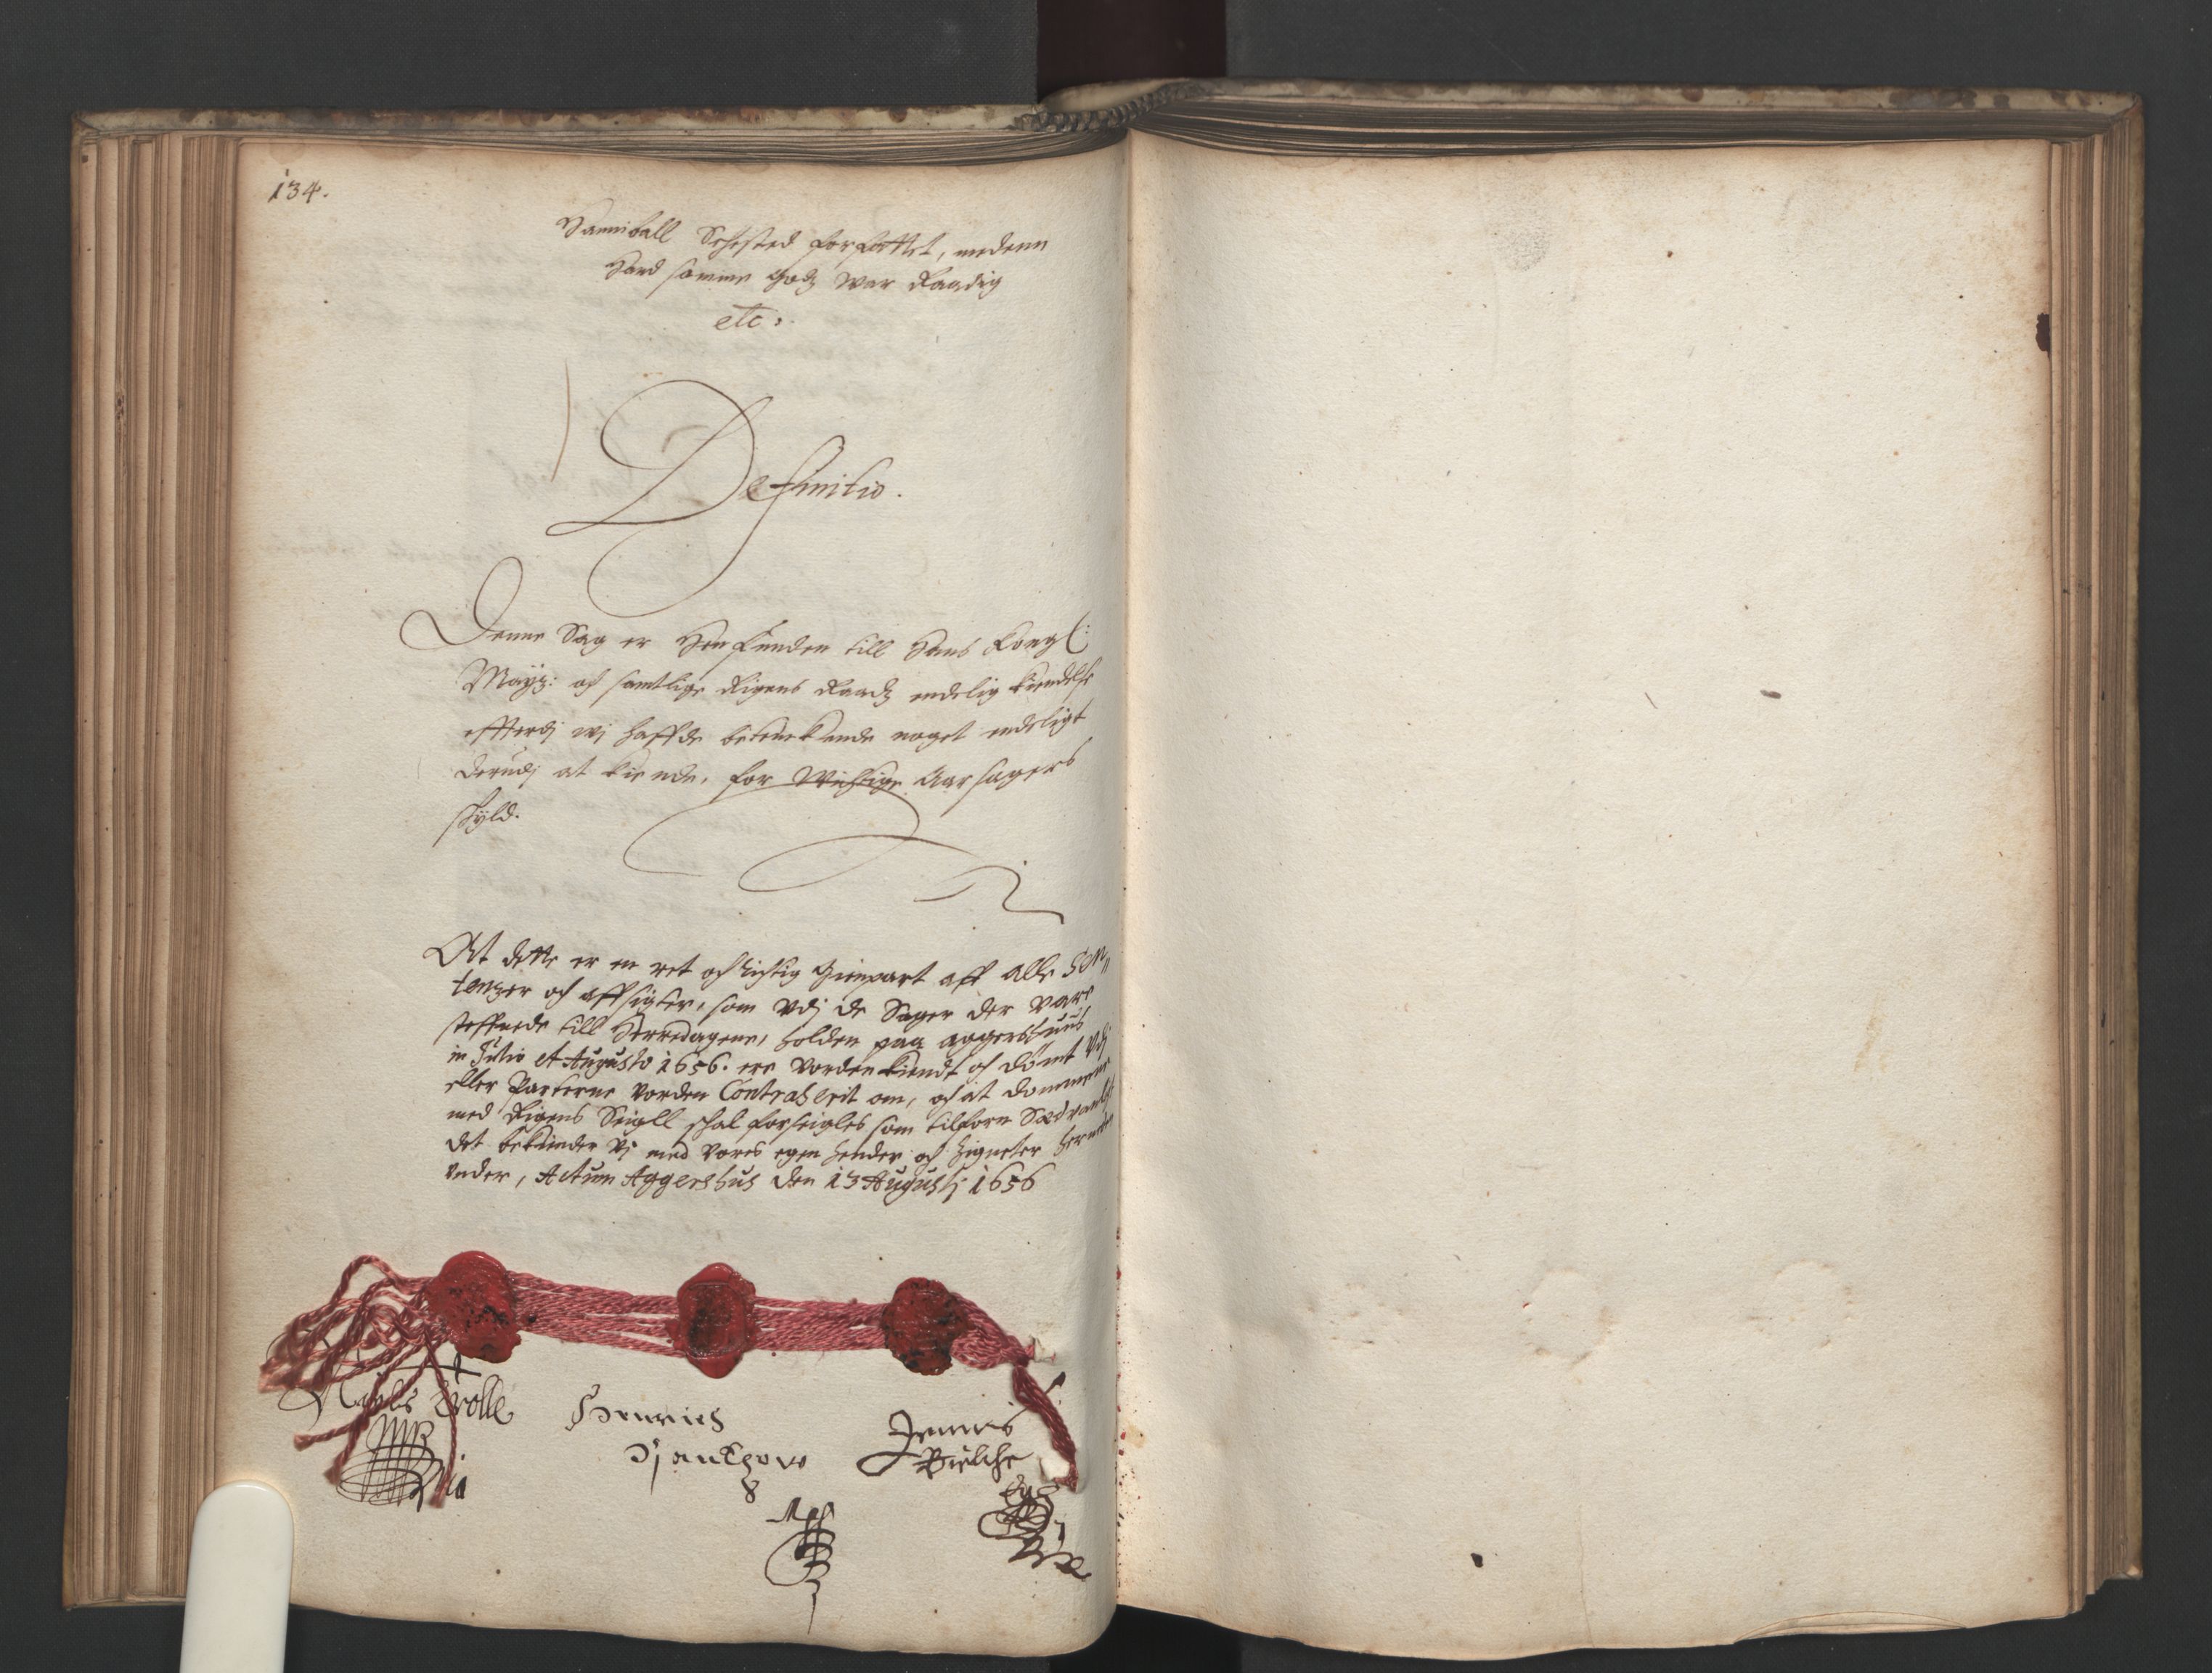 134.
Hanniball Sehsted forfattet, medenn
Hand samme godz war Raadig
etc:
Definitio.
Denne Sag er Henfunden till Hans Kongl:
Mayz: och samtlige Rigens Raadz endelig kiendelse
effterdj wj haffde betenckende noget endeligt
derudj at kiende, for Wichtige Aarsagers
skyld.
At dette er en ret och rictig Gienpart aff alle Sen„
tenzer och affsigter, som Vdj de Sager der vare
steffnede till Herredagene, holden paa Aggershuus
in Julio et Augusto 1656. ere vorden kiendt och dömt Vdj
eller Parterne vorden Contraherit om, och at dommene
med Rigens Seigll schal forseigles som tilforn Sædvanlig
det bekiender Vj med Vores egen hender och Zigneter her neden
Vnder, Actum Aggershus den 13 Augustj 1656
Niels Trolle
Henrich
Jennis
Bielche